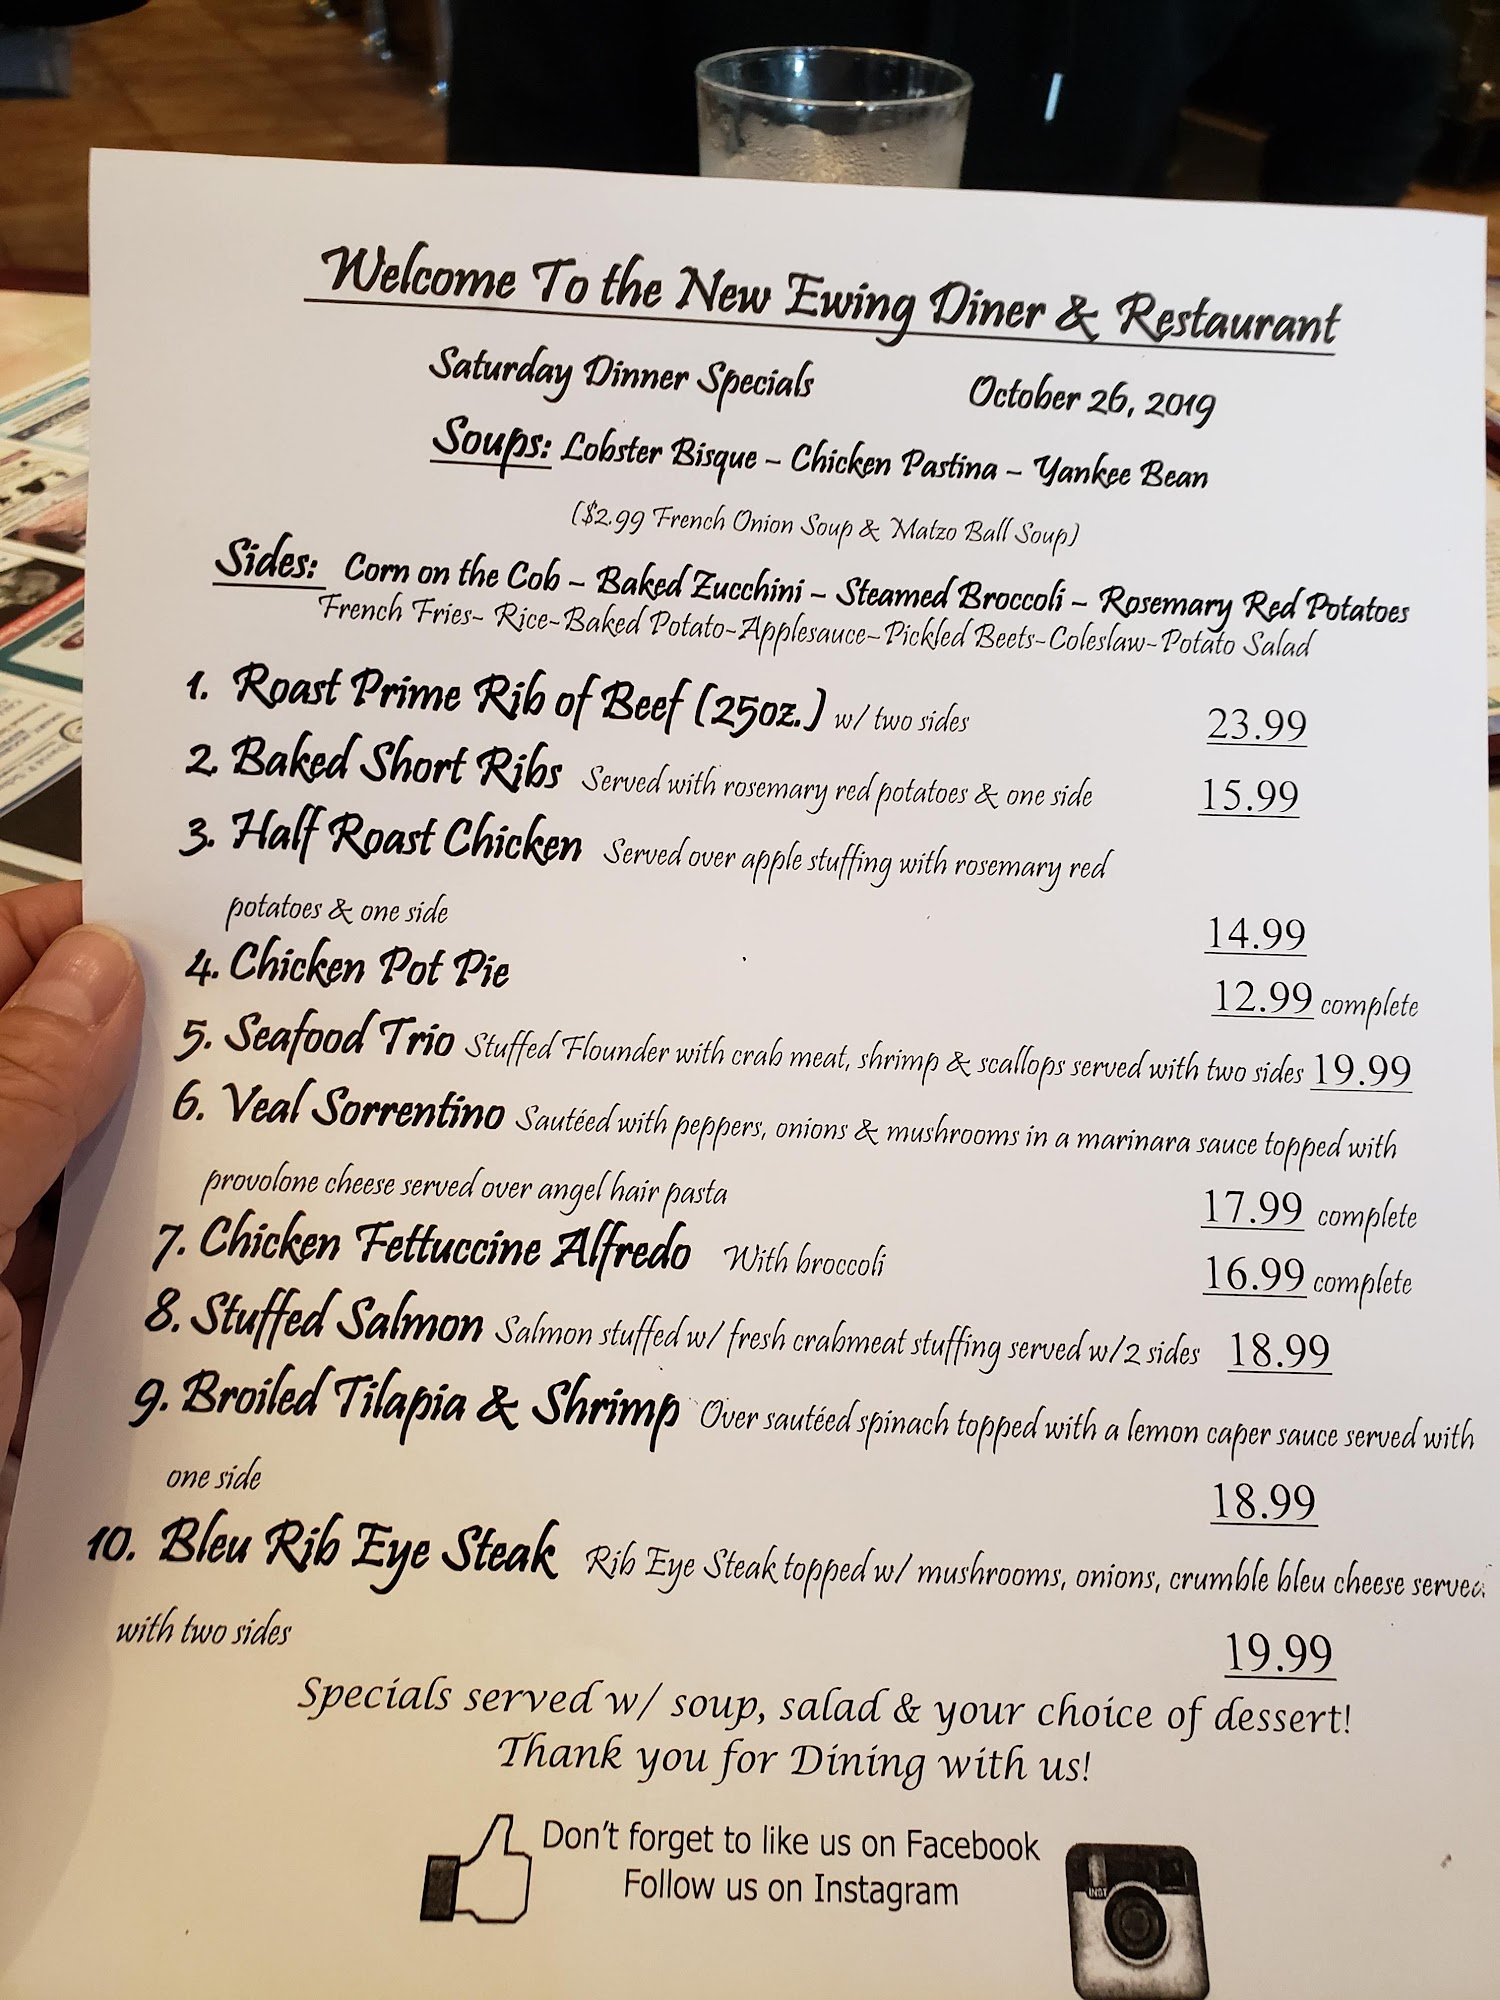 Welcome To the New Ewing Diner & Restaurant
Saturday Dinner Specials October 26, 2019
Soups: Lobster Bisque – Chicken Pastina – Yankee Bean
($2.99 French Onion Soup & Matzo Ball Soup)
Sides: Corn on the Cob – Baked Zucchini – Steamed Broccoli – Rosemary Red Potatoes
French Fries- Rice-Baked Potato-Applesauce-Pickled Beets-Coleslaw-Potato Salad
1. Roast Prime Rib of Beef (25oz.) w/ two sides 23.99
2. Baked Short Ribs Served with rosemary red potatoes & one side 15.99
3. Half Roast Chicken Served over apple stuffing with rosemary red
potatoes & one side 14.99
4. Chicken Pot Pie 12.99 complete
5. Seafood Trio Stuffed Flounder with crab meat, shrimp & scallops served with two sides 19.99
6. Veal Sorrentino Sautéed with peppers, onions & mushrooms in a marinara sauce topped with
provolone cheese served over angel hair pasta 17.99 complete
7. Chicken Fettuccine Alfredo With broccoli 16.99 complete
8. Stuffed Salmon Salmon stuffed w/ fresh crabmeat stuffing served w/2 sides 18.99
9. Broiled Tilapia & Shrimp Over sautéed spinach topped with a lemon caper sauce served with
one side 18.99
10. Bleu Rib Eye Steak Rib Eye Steak topped w/ mushrooms, onions, crumble bleu cheese served
with two sides 19.99
Specials served w/ soup, salad & your choice of dessert!
Thank you for Dining with us!
Don't forget to like us on Facebook
Follow us on Instagram
INST